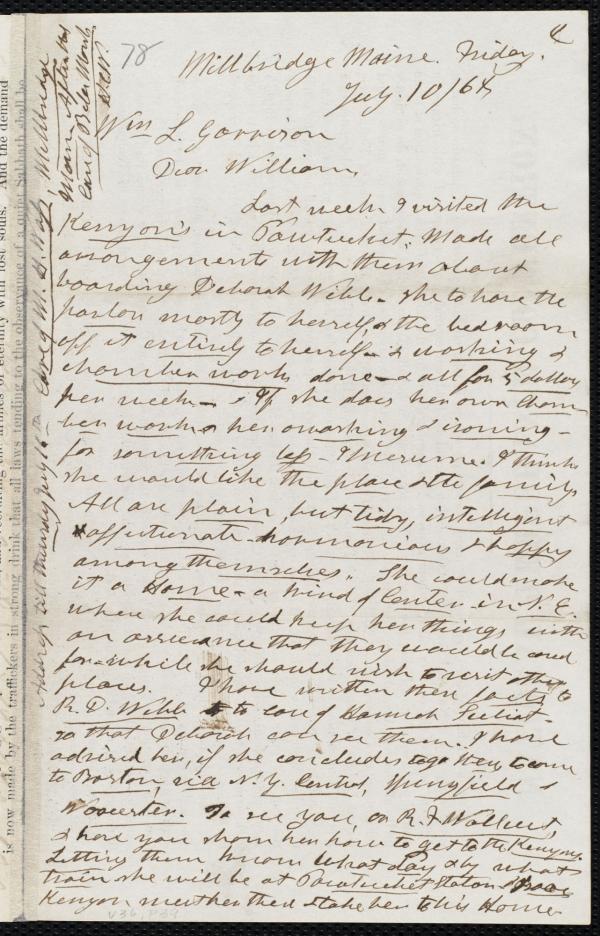 78
Millbridge Maine. Friday.
July. 10/68
Wm L. Garrison
Dear William,
Last week I visited the
Kenyon's in Pawtucket. Made all
arrangements with them about
boarding Deborah Webb - she to have the
parlor mostly to herself, & the bedroom
off it entirely to herself - & washing &
chamber work done - & all for 5 dollars
per week - & If she does her own cham-
ber work & her own washing & ironing -
for something less - I think
she would like the place & the family.
All are plain, but tidy, intelligent
affectionate - harmonious & happy
among themselves. She could make
it a Home - a kind of Center in N. E.
where she could keep her things with
an assurance that they would be cared
for - while she should wish to visit other
places. I have written these facts to
R. D. Webb to care of Hannah
so that Deborah can see them. I have
advised her, if she concludes to go to come
to Boston, via N. Y. Central, Springfield &
Worcester. To see you, or R. F. Wallcut,
& have you show her how to get to the Kenyons.
Letting them know what day & by what
train she will be at Pawtucket Station & Isaac
Kenyon meet her there & take her to his Home
Address till Monday July 16th care of M. B. Millbridge
Maine. After that
care of Bela Marsh
H.C.W.
is now made by the traffickers in strong drink that all laws tending to the observance of a quiet Sabbath shall be
with lost souls. And the demand
v.36, p.39